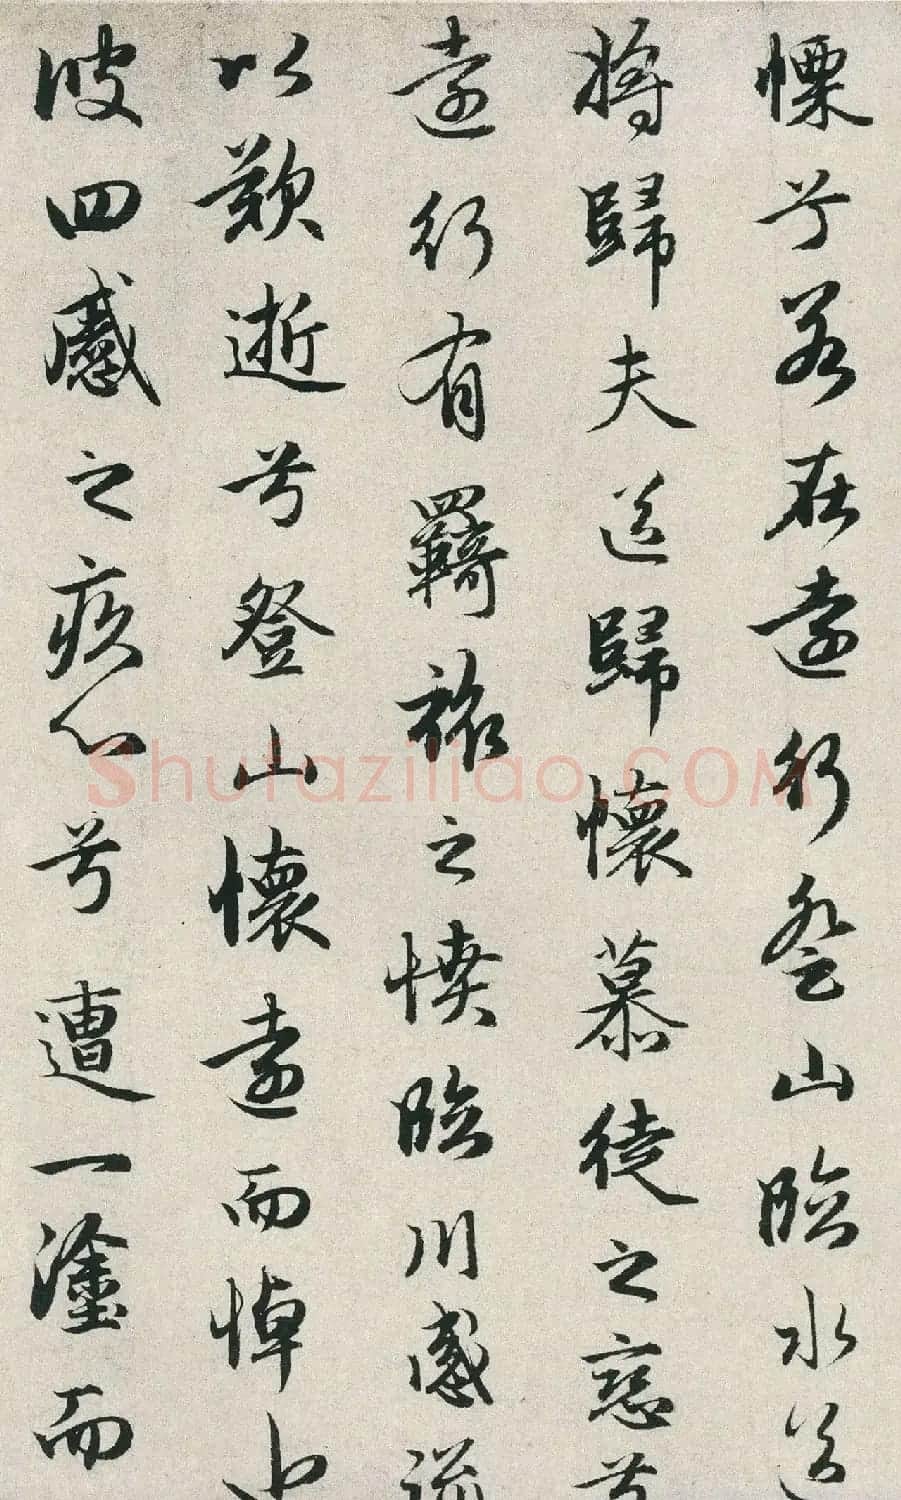 慄兮若在遠行登山臨水送
將歸夫送歸懷慕徒之戀兮
遠行有羈旅之憤臨川感流
以歎逝兮登山懷遠而悼
彼四慼之疚心兮遭一塗而
Shufaziliao.COM